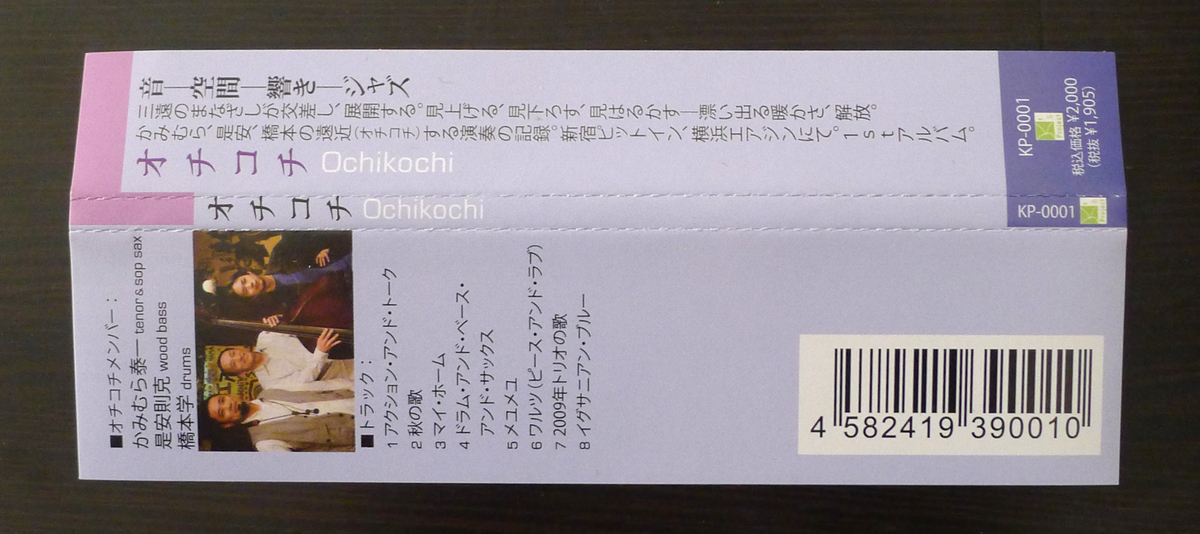 音—空間—響き—ジャズ
三遠のまなざしが交差し、展開する。見上げる、見下ろす、見はるかす—漂い出る暖かさ、解放。
かみむら、是安、橋本の遠近(オチコチ)する演奏の記録。新宿ピットイン、横浜エアジンにて。1stアルバム。
オチコチ Ochikochi
KP-0001
税込価格 ¥2,000
(税抜 ¥1,905)
オチコチ Ochikochi
KP-0001
■オチコチメンバー:
かみむら泰一 tenor & sop sax
是安則克 wood bass
橋本学 drums
■トラック:
1 アクション・アンド・トーク
2 秋の歌
3 マイ・ホーム
4 ドラム・アンド・ベース・
アンド・サックス
5 メユメユ
6 ワルツ(ピース・アンド・ラブ)
7 2009年トリオの歌
8 イグザニアン・ブルー
4 582419 390010